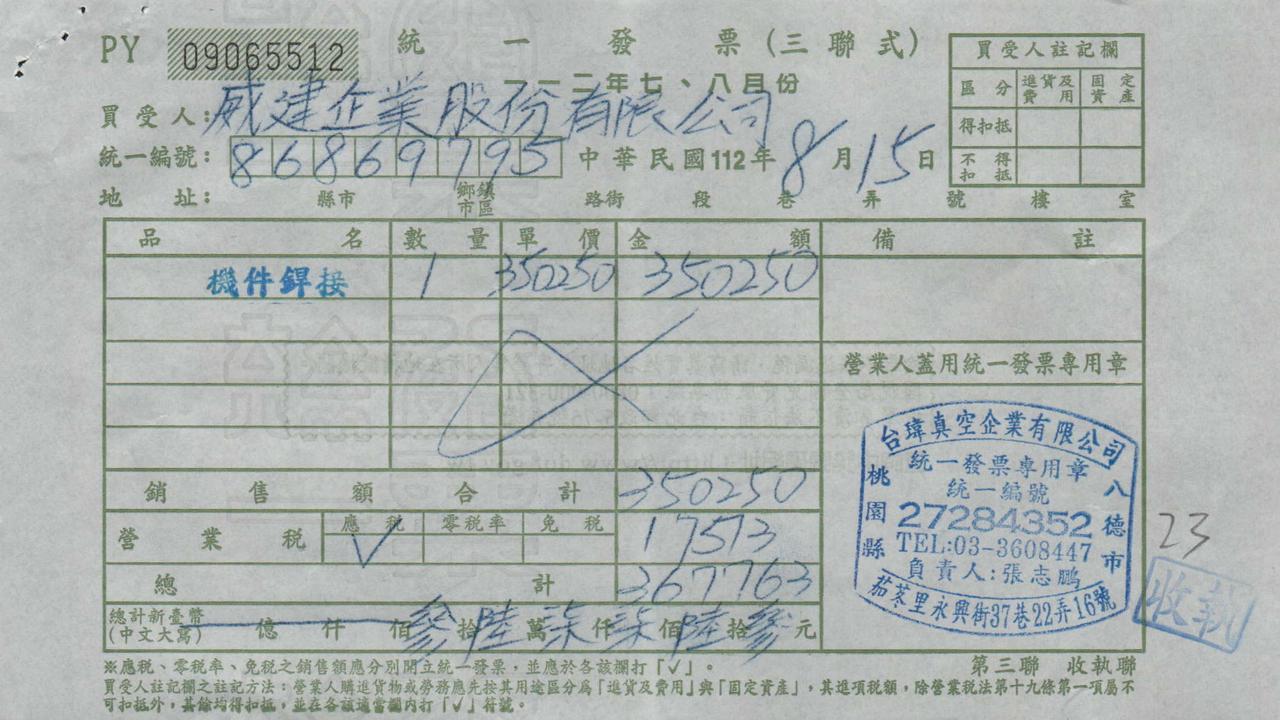 PY 09065512 統一發票(三聯式)
一一二年七、八月份
買受人: 威建企業股份有限公司
統一編號: 86869795 中華民國112年8月15日
地址: 縣市 鄉鎮市區 路街 段 巷 弄 號 樓 室
買受人註記欄
區分 進貨及費用 固定資產
得扣抵
不得扣抵
品名 數量 單價 金額 備註
機件銲接 1 350250 350250
營業人蓋用統一發票專用章
銷售額合計 350250
營業稅 應稅 ✓ 零稅率 免稅 17513
總計 367763
總計新臺幣(中文大寫) 億 仟 佰 參拾 陸萬 柒仟 柒佰 陸拾 參元
台瑋真空企業有限公司
統一發票專用章
統一編號
27284352
TEL:03-3608447
負責人:張志鵬
桃園縣
八德市
茄苳里永興街37巷22弄16號
23
收執
※應稅、零稅率、免稅之銷售額應分別開立統一發票,並應於各該欄打「✓」。
第三聯 收執聯
買受人註記欄之註記方法:營業人購進貨物或勞務應先按其用途區分為「進貨及費用」與「固定資產」,其進項稅額,除營業稅法第十九條第一項屬不
可扣抵外,其餘均得扣抵,並在各該適當欄內打「✓」符號。